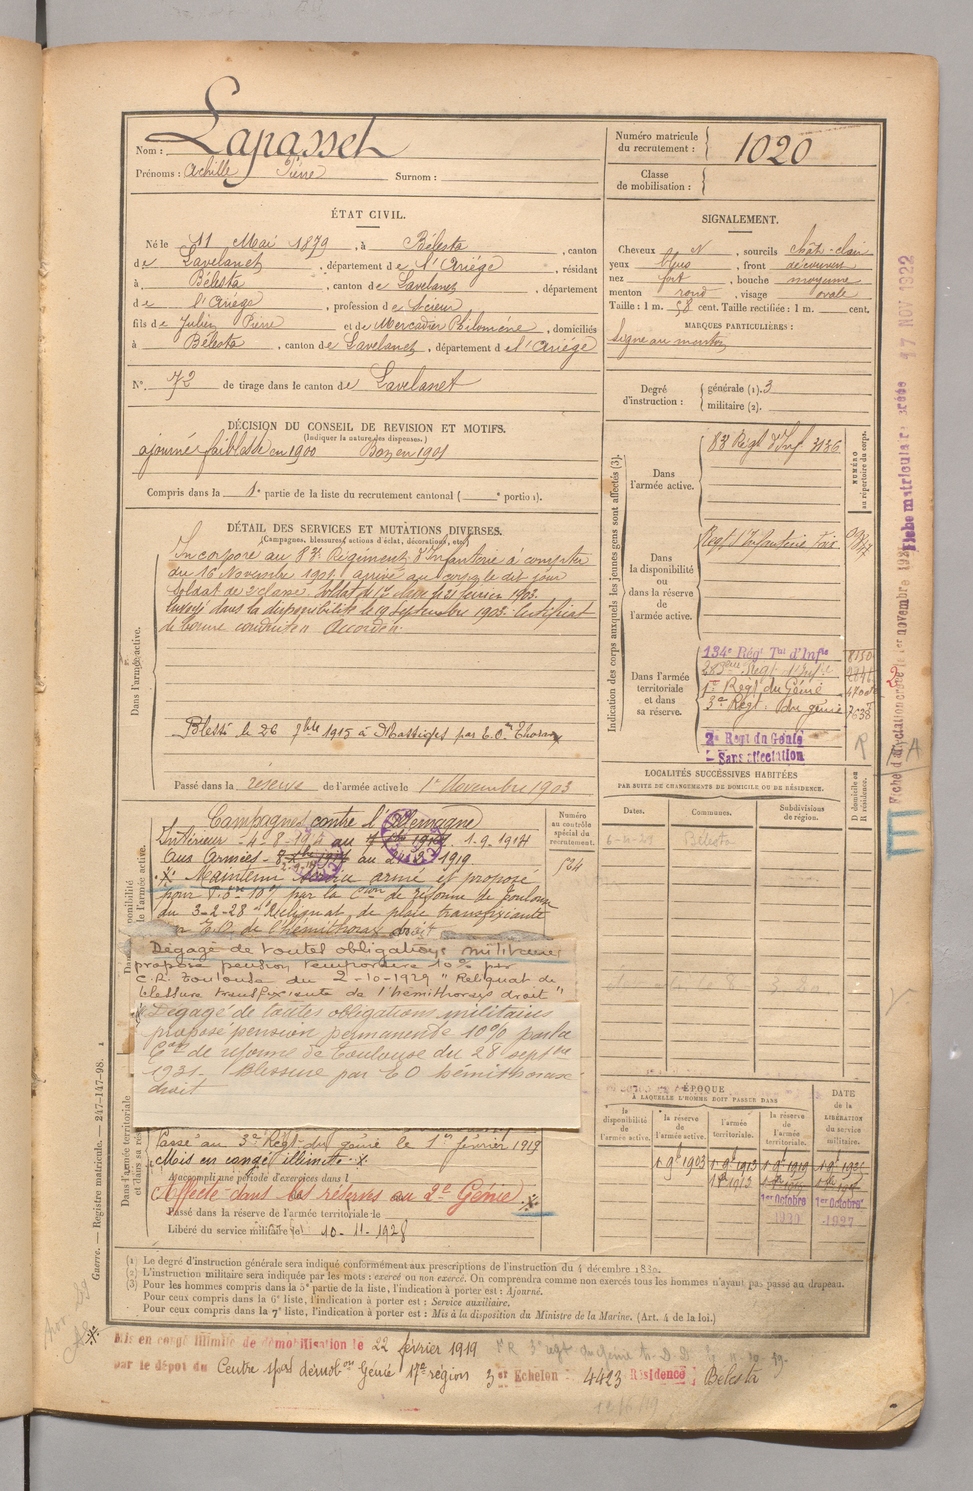 Nom : Lapasset
Prénoms : Achille Pierre Surnom :
Numéro matricule du recrutement : 1020
Classe de mobilisation :
ÉTAT CIVIL.
Né le 11 Mai 1879, à Bélesta, canton
de Lavelanet, département de l'Ariège, résidant
à Bélesta, canton de Lavelanet, département
de l'Ariège, profession de Scieur
fils de Julien Pierre et de Mercadier Philomène, domiciliés
à Bélesta, canton de Lavelanet, département de l'Ariège
N°. 72 de tirage dans le canton de Lavelanet
SIGNALEMENT.
Cheveux N, sourcils chât-clair
yeux bleus, front découvert
nez fort, bouche moyenne
menton rond, visage ovale
Taille : 1 m. 58 cent. Taille rectifiée : 1 m. cent.
MARQUES PARTICULIÈRES :
Signe au menton
Degré d'instruction : générale (1). 3
militaire (2).
DÉCISION DU CONSEIL DE REVISION ET MOTIFS.
(Indiquer la nature des dispenses.)
ajourné faiblesse en 1900 Bon en 1901
Compris dans la 1e partie de la liste du recrutement cantonal ( e portion).
DÉTAIL DES SERVICES ET MUTATIONS DIVERSES.
(Campagnes, blessures, actions d'éclat, décorations, etc.)
Dans l'armée active.
Incorporé au 83e Régiment d'Infanterie à compter
du 16 Novembre 1901, arrivé au corps le dit jour
Soldat de 2e classe. Soldat de 1re classe le 21 février 1903.
Envoyé dans la disponibilité le 19 septembre 1903. Certificat
de bonne conduite "Accordé".
Blessé le 26 7bre 1915 à Massiges par E.O. Thorax
Passé dans la réserve de l'armée active le 1er Novembre 1903
Indication des corps auxquels les jeunes gens sont affectés (3).
NUMÉRO au répertoire du corps.
Dans l'armée active.
83 Régt d'Inf 3136
Dans la disponibilité ou dans la réserve de l'armée active.
Régt d'Infanterie Foix
Dans l'armée territoriale et dans sa réserve.
134e Régt Tal d'Infie
283ème Régt d'Infie
1er Régt du Génie
3e Régt. du génie 7638
2e Regt du Génie
Sans affectation
R
Fiche matriculaire créée 17 NOV 1922
LOCALITÉS SUCCESSIVES HABITÉES
PAR SUITE DE CHANGEMENTS DE DOMICILE OU DE RÉSIDENCE.
D domicile ou R résidence.
Dates. Communes. Subdivisions de région.
Bélesta
Numéro au contrôle spécial du recrutement.
524
Campagnes contre l'Allemagne
Intérieur 4-8-1914 au 1-9-1914
Aux Armées
Maintenu service armé et proposé
pour P. re 10% par la Cion de réforme de Toulouse
du 3-2-28 "Reliquat de plaie transfixiante
par E.O. de l'hémithorax droit
Dégagé de toutes obligations militaires
proposé pension temporaire 10% par
C.R. Toulouse du 2-10-1929 "Reliquat de
blessure transfixiante de l'hémithorax droit"
Dégagé de toutes obligations militaires
proposé pension permanente 10% par la
Con de réforme de Toulouse du 28 septbre
1931. Blessure par EO hémithorax
droit
Dans l'armée territoriale et dans sa réserve
Passé au 3e Régt du génie le 1er février 1919
Mis en congé illimité.
A accompli une période d'exercices dans l
Affecté dans les réserves au 2e Génie
Passé dans la réserve de l'armée territoriale le
Libéré du service militaire le 10-11-1928
ÉPOQUE
À LAQUELLE L'HOMME DOIT PASSER DANS
la disponibilité de l'armée active.
la réserve de l'armée active.
l'armée territoriale.
la réserve de l'armée territoriale.
DATE de la LIBÉRATION du service militaire.
1 9e 1903 1 9e 1913 1 9e 1919
1er Octobre 1er Octobre
1927
(1) Le degré d'instruction générale sera indiqué conformément aux prescriptions de l'instruction du 4 décembre 1889.
(2) L'instruction militaire sera indiquée par les mots : exercé ou non exercé. On comprendra comme non exercés tous les hommes n'ayant pas passé au drapeau.
(3) Pour les hommes compris dans la 5e partie de la liste, l'indication à porter est : Ajourné.
Pour ceux compris dans la 6e liste, l'indication à porter est : Service auxiliaire.
Pour ceux compris dans la 7e liste, l'indication à porter est : Mis à la disposition du Ministre de la Marine. (Art. 4 de la loi.)
Guerre. — Registre matricule. — 247-147-98.
Mis en congé illimité de démobilisation le 22 février 1919
par le dépôt du Centre spal démobon Génie 17e région 3er Echelon : 4423 Résidence : Bélesta